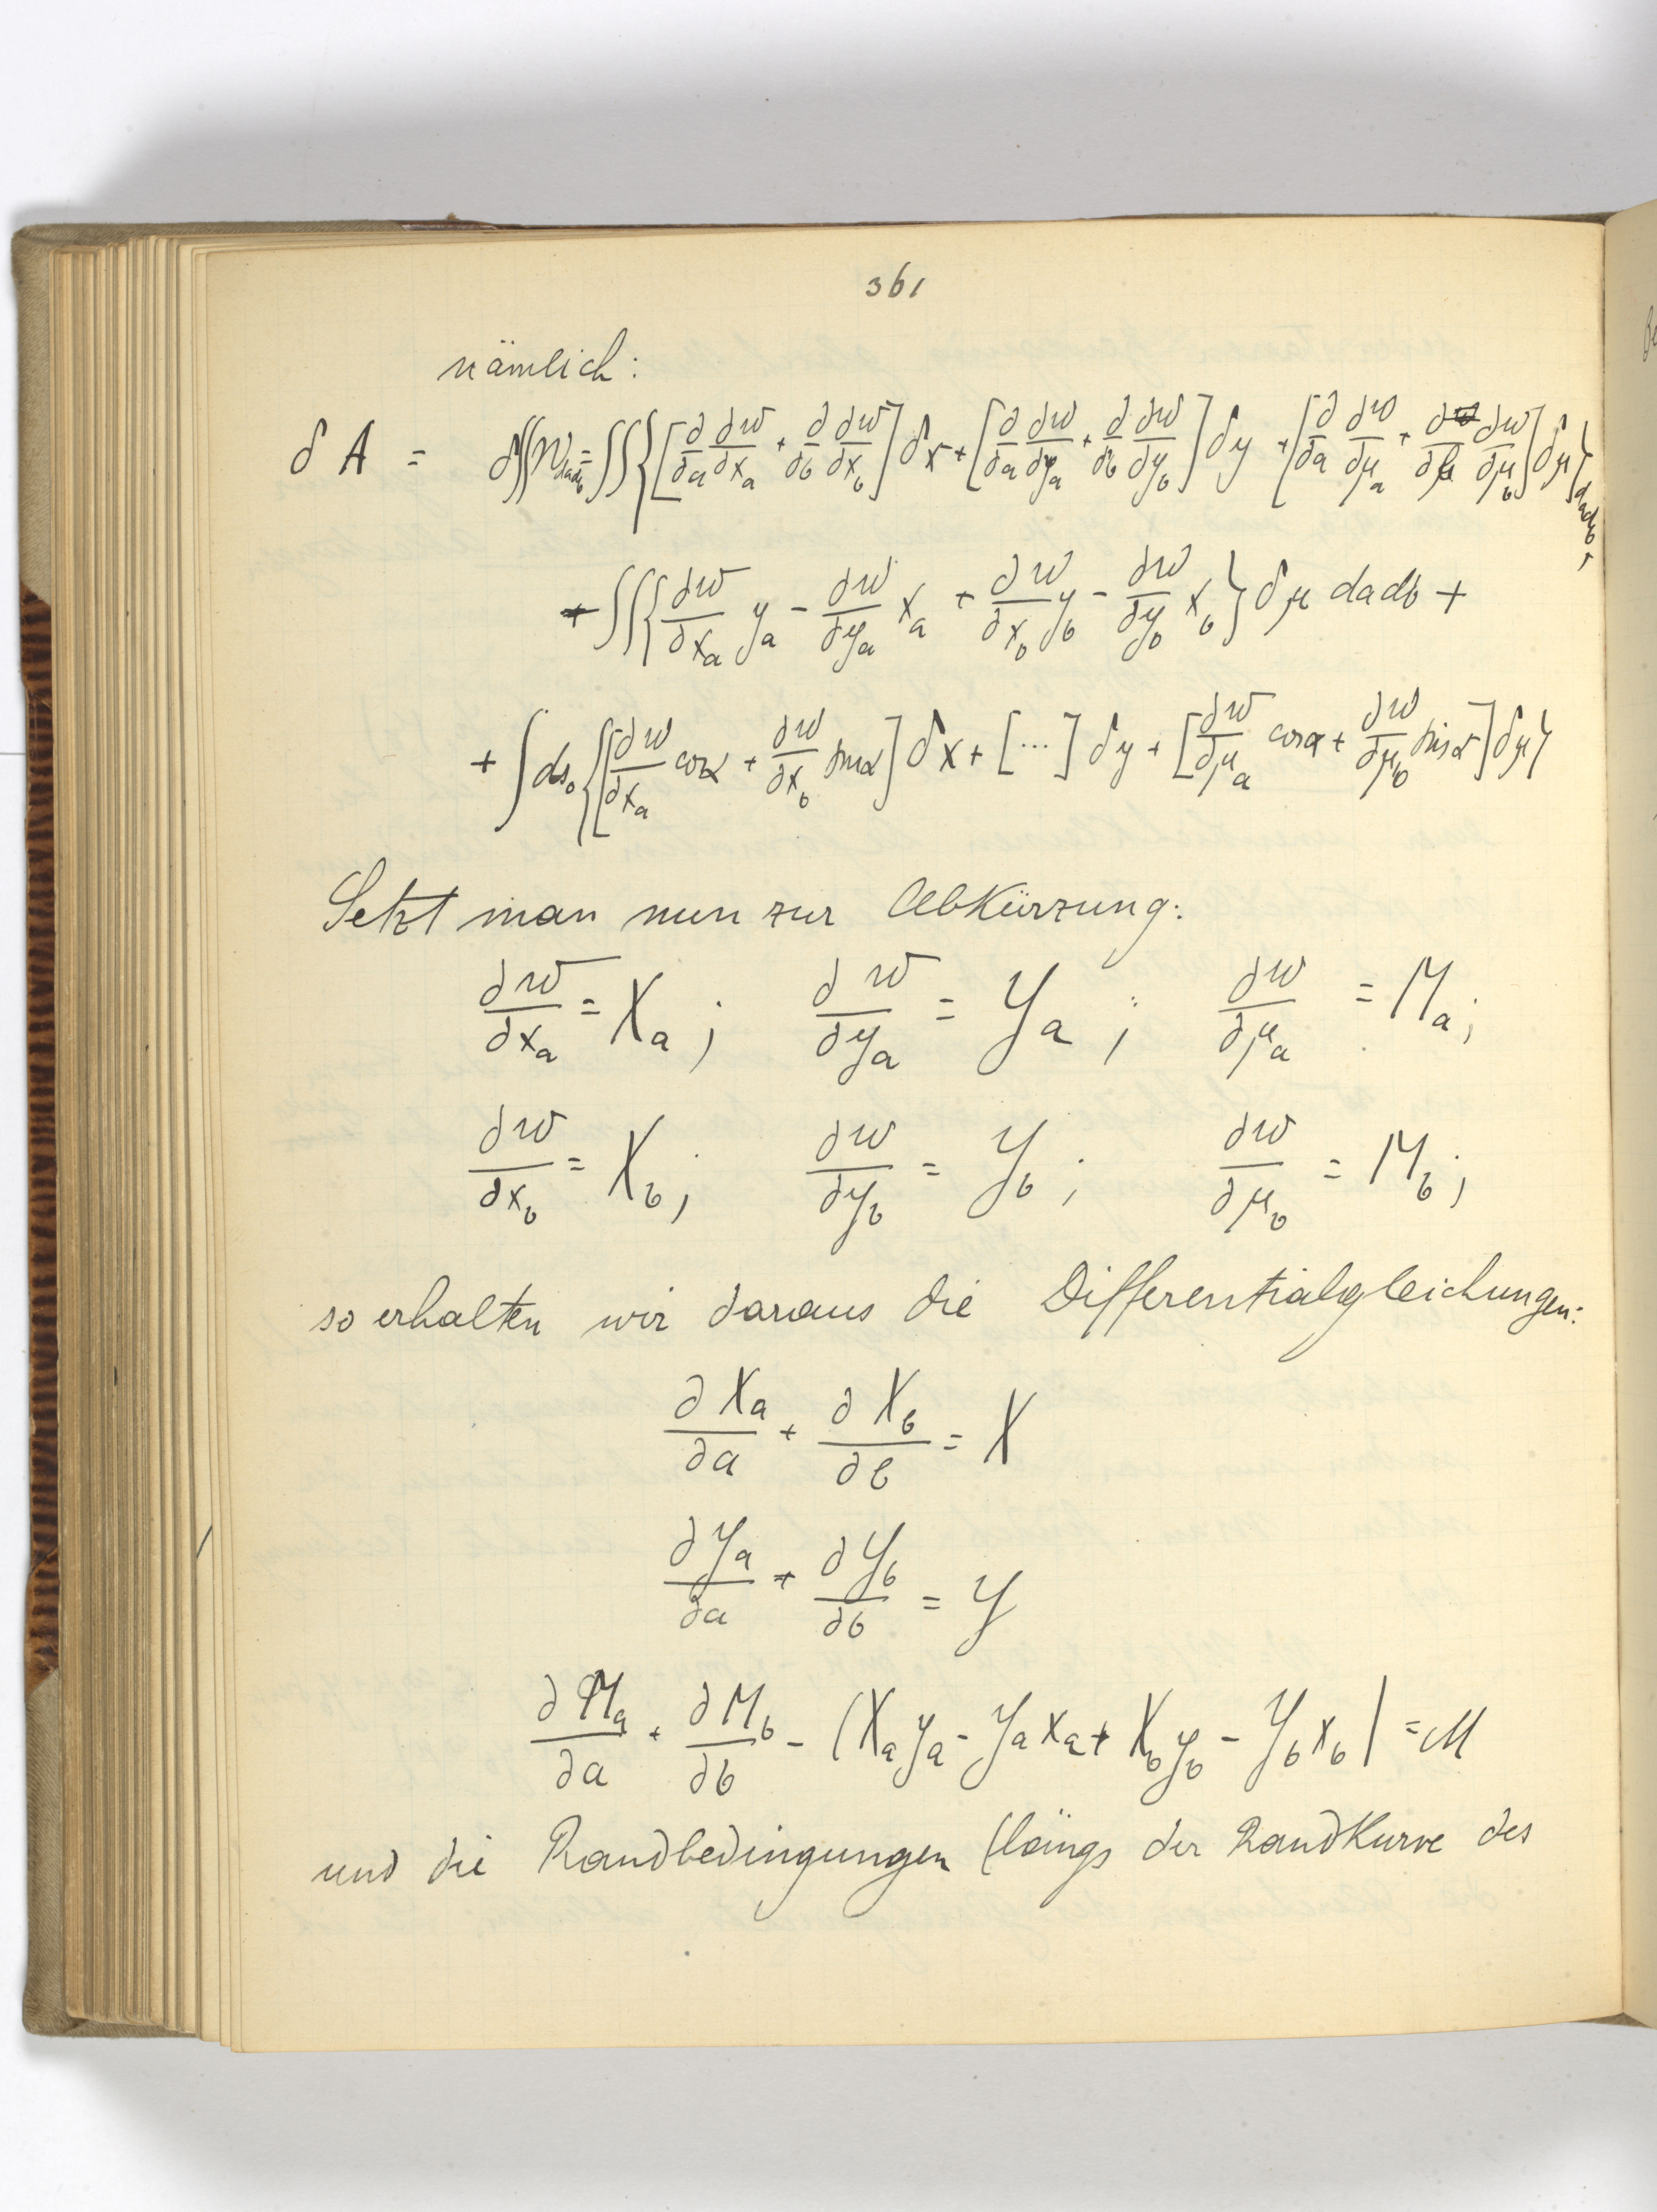 361
nämlich:
δA = δ∬W da db = ∬{[∂/∂a ∂W/∂x_a + ∂/∂b ∂W/∂x_b] δx + [∂/∂a ∂W/∂y_a + ∂/∂b ∂W/∂y_b] δy + [∂/∂a ∂W/∂μ_a + ∂/∂b ∂W/∂μ_b] δμ} da db,
+ ∬{∂W/∂x_a y_a − ∂W/∂y_a x_a + ∂W/∂x_b y_b − ∂W/∂y_b x_b} δμ da db +
+ ∫ ds_0 {[∂W/∂x_a cos α + ∂W/∂x_b sin α] δx + [...] δy + [∂W/∂μ_a cos α + ∂W/∂μ_b sin α] δμ}
Setzt man nun zur Abkürzung:
∂W/∂x_a = X_a ; ∂W/∂y_a = Y_a ; ∂W/∂μ_a = M_a ;
∂W/∂x_b = X_b ; ∂W/∂y_b = Y_b ; ∂W/∂μ_b = M_b ;
so erhalten wir daraus die Differentialgleichungen:
∂X_a/∂a + ∂X_b/∂b = X
∂Y_a/∂a + ∂Y_b/∂b = Y
∂M_a/∂a + ∂M_b/∂b − (X_a y_a − Y_a x_a + X_b y_b − Y_b x_b) = M
und die Randbedingungen (längs der Randkurve des